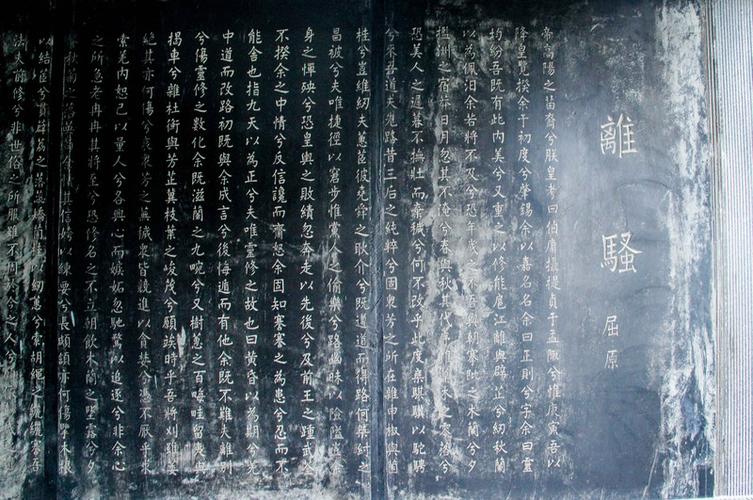 離騷
屈原
帝高陽之苗裔兮朕皇考曰伯庸攝提貞于孟陬兮惟庚寅吾以
降皇覽揆余于初度兮肇錫余以嘉名名余曰正則兮字余曰靈
均紛吾既有此內美兮又重之以修能扈江離與辟芷兮紉秋蘭
以為佩汨余若將不及兮恐年歲之不吾與朝搴阰之木蘭兮夕
攬洲之宿莽日月忽其不淹兮春與秋其代序惟草木之零落兮
恐美人之遲暮不撫壯而棄穢兮何不改乎此度乘騏驥以馳騁
兮來吾道夫先路昔三后之純粹兮固眾芳之所在雜申椒與菌
桂兮豈維紉夫蕙茝彼堯舜之耿介兮既遵道而得路何桀紂之
昌被兮夫唯捷徑以窘步惟黨人之偷樂兮路幽昧以險隘豈余
身之憚殃兮恐皇輿之敗績忽奔走以先後兮及前王之踵武荃
不揆余之中情兮反信讒而齌怒余固知謇謇之為患兮忍而不
能舍也指九天以為正兮夫唯靈修之故也曰黃昏以為期兮羌
中道而改路初既與余成言兮後悔遁而有他余既不難夫離別
兮傷靈修之數化余既滋蘭之九畹兮又樹蕙之百畝畦留夷與
揭車兮雜杜衡與芳芷冀枝葉之峻茂兮願竢時乎吾將刈雖萎
絕其亦何傷兮哀眾芳之蕪穢眾皆競進以貪婪兮憑不厭乎求
索羌內恕己以量人兮各興心而嫉妬忽馳騖以追逐兮非余心
之所急老冉冉其將至兮恐修名之不立朝飲木蘭之墜露兮夕
秋菊之落英苟余情其信姱以練要兮長顑頷亦何傷擥木根
以結茝兮貫薜荔之落蕊矯菌桂以紉蕙兮索胡繩之纚纚謇吾
法夫前修兮非世俗之所服雖不周於今之人兮